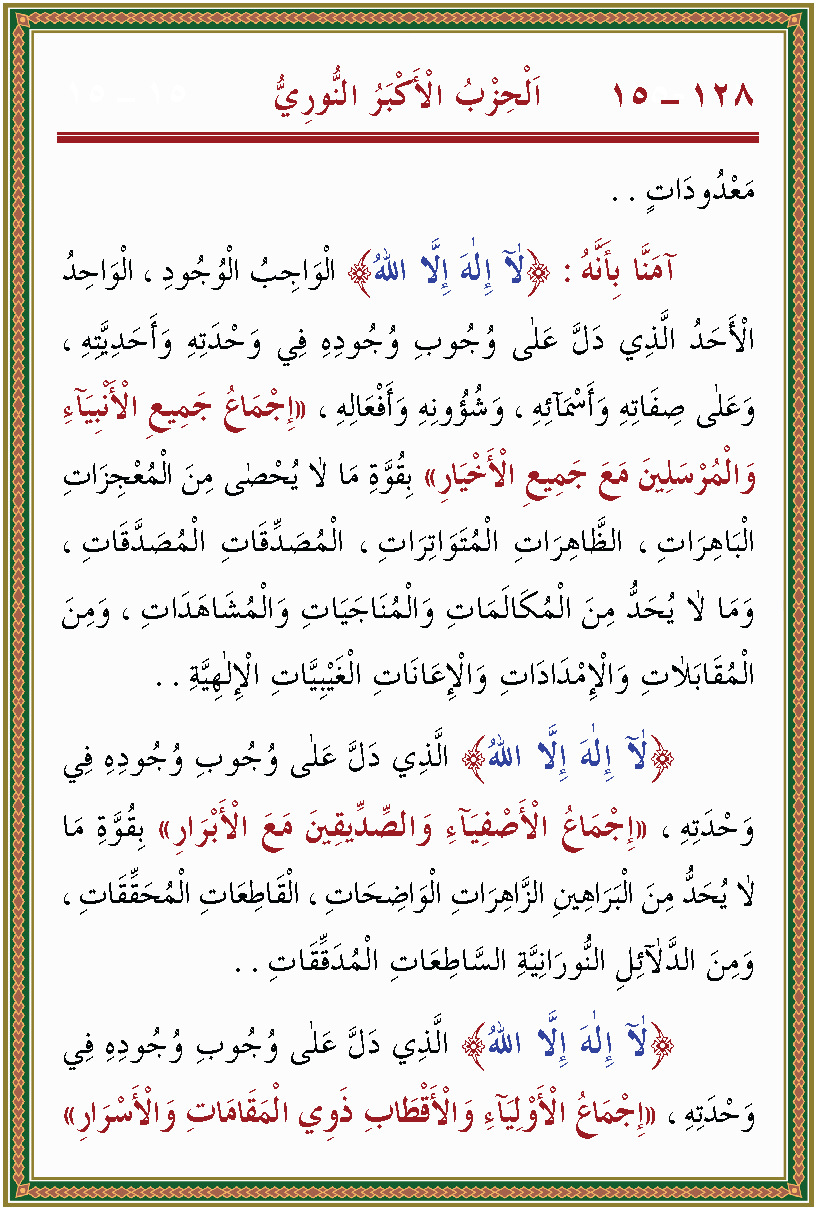 ١٢٨ ـ ١٥ اَلْحِزْبُ الْأَكْبَرُ النُّورِيُّ ١٥ ـ ١٥
مَعْدُودَاتٍ . .
آمَنَّا بِأَنَّهُ : ﴿لٰٓا إِلٰهَ إِلَّا اللهُ﴾ الْوَاجِبُ الْوُجُودِ ، الْوَاحِدُ
الْأَحَدُ الَّذِي دَلَّ عَلٰى وُجُوبِ وُجُودِهِ فِي وَحْدَتِهِ وَأَحَدِيَّتِهِ ،
وَعَلٰى صِفَاتِهِ وَأَسْمَآئِهِ ، وَشُؤُونِهِ وَأَفْعَالِهِ ، «إِجْمَاعُ جَمِيعِ الْأَنْبِيَآءِ
وَالْمُرْسَلِينَ مَعَ جَمِيعِ الْأَخْيَارِ» بِقُوَّةِ مَا لٰا يُحْصٰى مِنَ الْمُعْجِزَاتِ
الْبَاهِرَاتِ ، الظَّاهِرَاتِ الْمُتَوَاتِرَاتِ ، الْمُصَدِّقَاتِ الْمُصَدَّقَاتِ ،
وَمَا لٰا يُحَدُّ مِنَ الْمُكَالَمَاتِ وَالْمُنَاجَيَاتِ وَالْمُشَاهَدَاتِ ، وَمِنَ
الْمُقَابَلٰاتِ وَالْإِمْدَادَاتِ وَالْإِعَانَاتِ الْغَيْبِيَّاتِ الْإِلٰهِيَّةِ . .
﴿لٰٓا إِلٰهَ إِلَّا اللهُ﴾ الَّذِي دَلَّ عَلٰى وُجُوبِ وُجُودِهِ فِي
وَحْدَتِهِ ، «إِجْمَاعُ الْأَصْفِيَآءِ وَالصِّدِّيقِينَ مَعَ الْأَبْرَارِ» بِقُوَّةِ مَا
لٰا يُحَدُّ مِنَ الْبَرَاهِينِ الزَّاهِرَاتِ الْوَاضِحَاتِ ، الْقَاطِعَاتِ الْمُحَقِّقَاتِ ،
وَمِنَ الدَّلٰٓائِلِ النُّورَانِيَّةِ السَّاطِعَاتِ الْمُدَقِّقَاتِ . .
﴿لٰٓا إِلٰهَ إِلَّا اللهُ﴾ الَّذِي دَلَّ عَلٰى وُجُوبِ وُجُودِهِ فِي
وَحْدَتِهِ ، «إِجْمَاعُ الْأَوْلِيَآءِ وَالْأَقْطَابِ ذَوِي الْمَقَامَاتِ وَالْأَسْرَارِ»